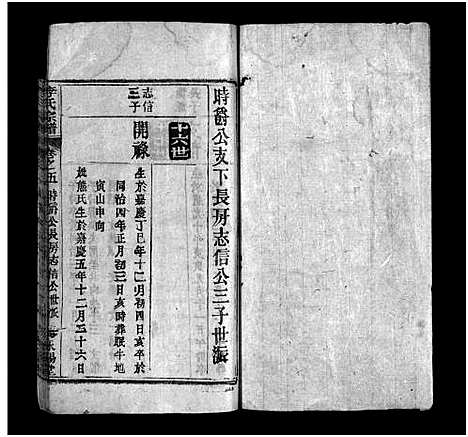 時爵公支下長房志信公三子世派
十六世
志信
三子
開祿
生於嘉慶丁巳年十二月初四日亥時卒於
同治四年正月初三日亥時葬眠牛地
寅山申向
熊氏生於嘉慶五年十二月二十六日
李氏宗譜 卷之五 時爵公長房志信公世派